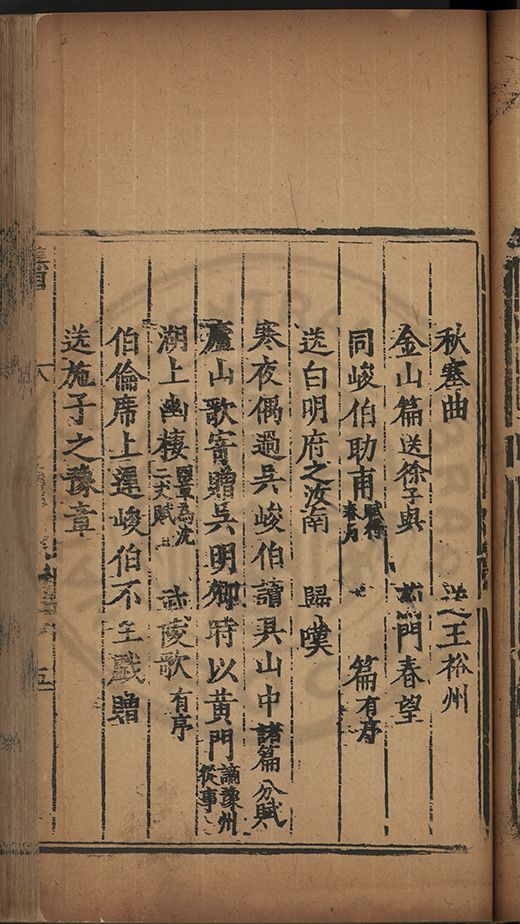 秋塞曲 送王裕州
金山篇送徐子與 門春望
同峻伯助甫賦得春月 篇有序
送白明府之汝南 歸嘆
寒夜偶過吳峻伯讀其山中諸篇分賦
廬山歌寄贈吳明卿時以黃門謫豫州從事
湖上幽棲四章為沈二丈賦 武陵歌有序
伯倫席上遲峻伯不至戲贈
送施子之豫章
集目 六 五